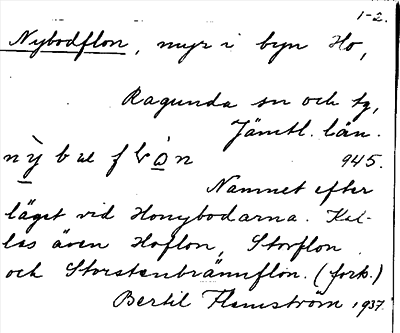 1-2.
Nybodflon, myr i byn Ho,
Ragunda sn och tg,
Jämtl. län.
945.
Namnet efter
läget vid Honybodarna. Kal-
las även Hoflon, Storflon
och Storstenbrännflon. (fork.)
Bertil Flemström, 1937.